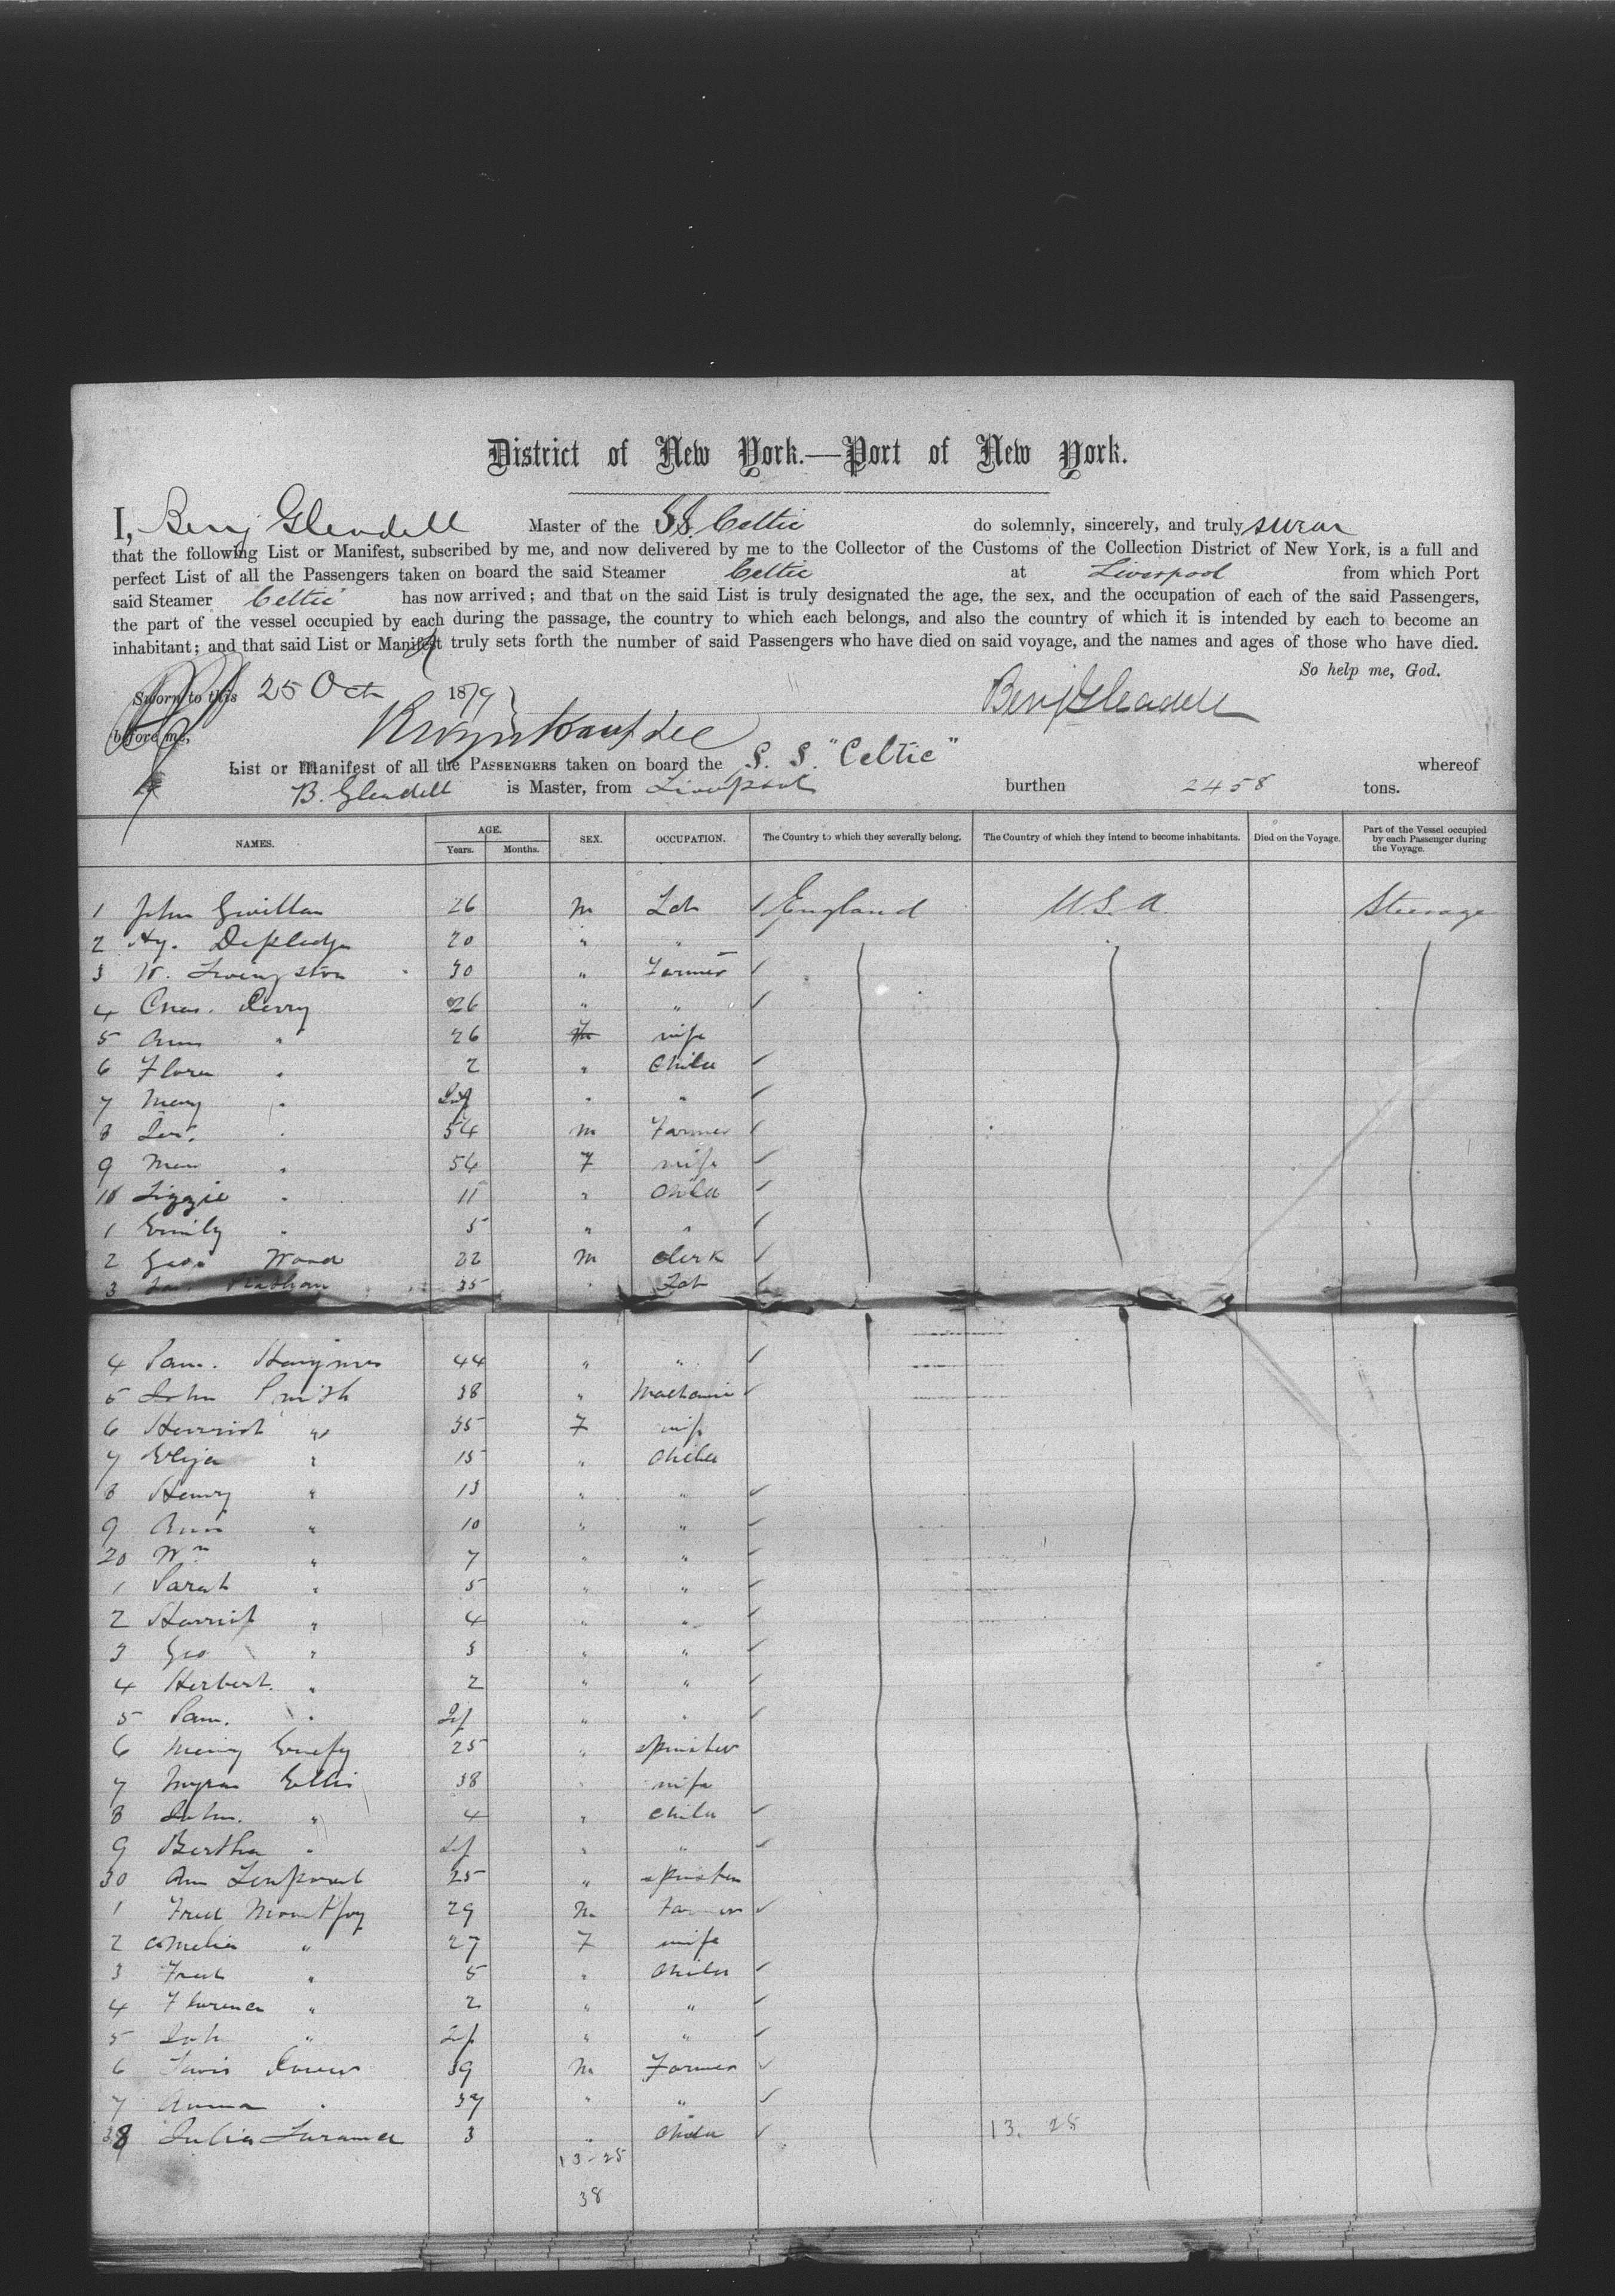 District of New York.—Port of New York.
I, Benj Gleadell Master of the SS. Celtic do solemnly, sincerely, and truly swear
that the following List or Manifest, subscribed by me, and now delivered by me to the Collector of the Customs of the Collection District of New York, is a full and
perfect List of all the Passengers taken on board the said Steamer Celtic at Liverpool from which Port
said Steamer Celtic has now arrived; and that on the said List is truly designated the age, the sex, and the occupation of each of the said Passengers,
the part of the vessel occupied by each during the passage, the country to which each belongs, and also the country of which it is intended by each to become an
inhabitant; and that said List or Manifest truly sets forth the number of said Passengers who have died on said voyage, and the names and ages of those who have died.
So help me, God.
Sworn to this 25 Oct 1879
Benj Gleadell
before me,
List or Manifest of all the PASSENGERS taken on board the S. S. "Celtic" whereof
B. Gleadell is Master, from Liverpool burthen 2458 tons.
NAMES. AGE. Years. Months. SEX. OCCUPATION. The Country to which they severally belong. The Country of which they intend to become inhabitants. Died on the Voyage. Part of the Vessel occupied by each Passenger during the Voyage.
1 John 26 m England U.S.A. Steerage
2 Hy. 20 " "
3 W. Livingston 30 " Farmer
4 Chas. 26 " "
5 Ann " 26 wife
6 Flora " 2 " Child
7 Mary " Inf " "
8 " 54 m Farmer
9 " 54 F wife
10 Lizzie " 11 " Child
1 Emily " 5 " "
2 Geo. Wood 22 m Clerk
3 35 "
4 Sam. 44 " "
5 John Smith 38 " Mechanic
6 Harriet " 35 F wife
7 Eliza " 15 " Child
8 Henry " 13 " "
9 " 10 " "
20 Wm " 7 " "
1 Sarah " 5 " "
2 Harriet " 4 " "
3 Geo " 3 " "
4 Herbert. " 2 " "
5 Sam. " Inf " "
6 25 " spinster
7 Ellis 38 " wife
8 John. " 4 " Child
9 Bertha " Inf " "
30 Ann 25 " spinster
1 Fred Mountjoy 29 m Farmer
2 " 27 F wife
3 Fred " 5 " Child
4 Florence " 2 " "
5 " Inf " "
6 39 m Farmer
7 " 37 " "
38 Julia 3 " Child
13. 25
13-25
38